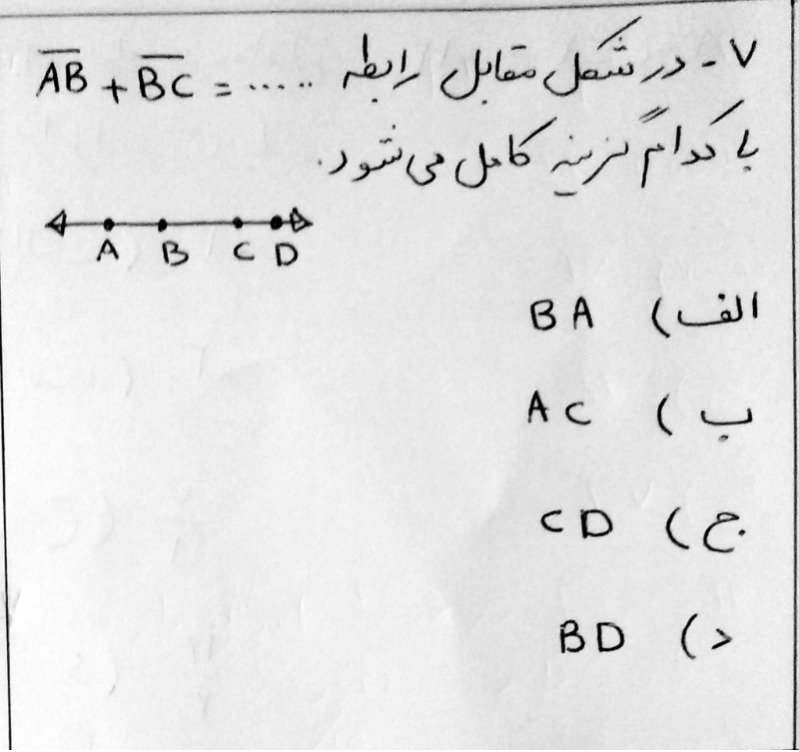 ۷- در شکل مقابل رابطه ..... = AB + BC
با کدام گزینه کامل می شود.
A B C D
الف) BA
ب) AC
ج) CD
د) BD